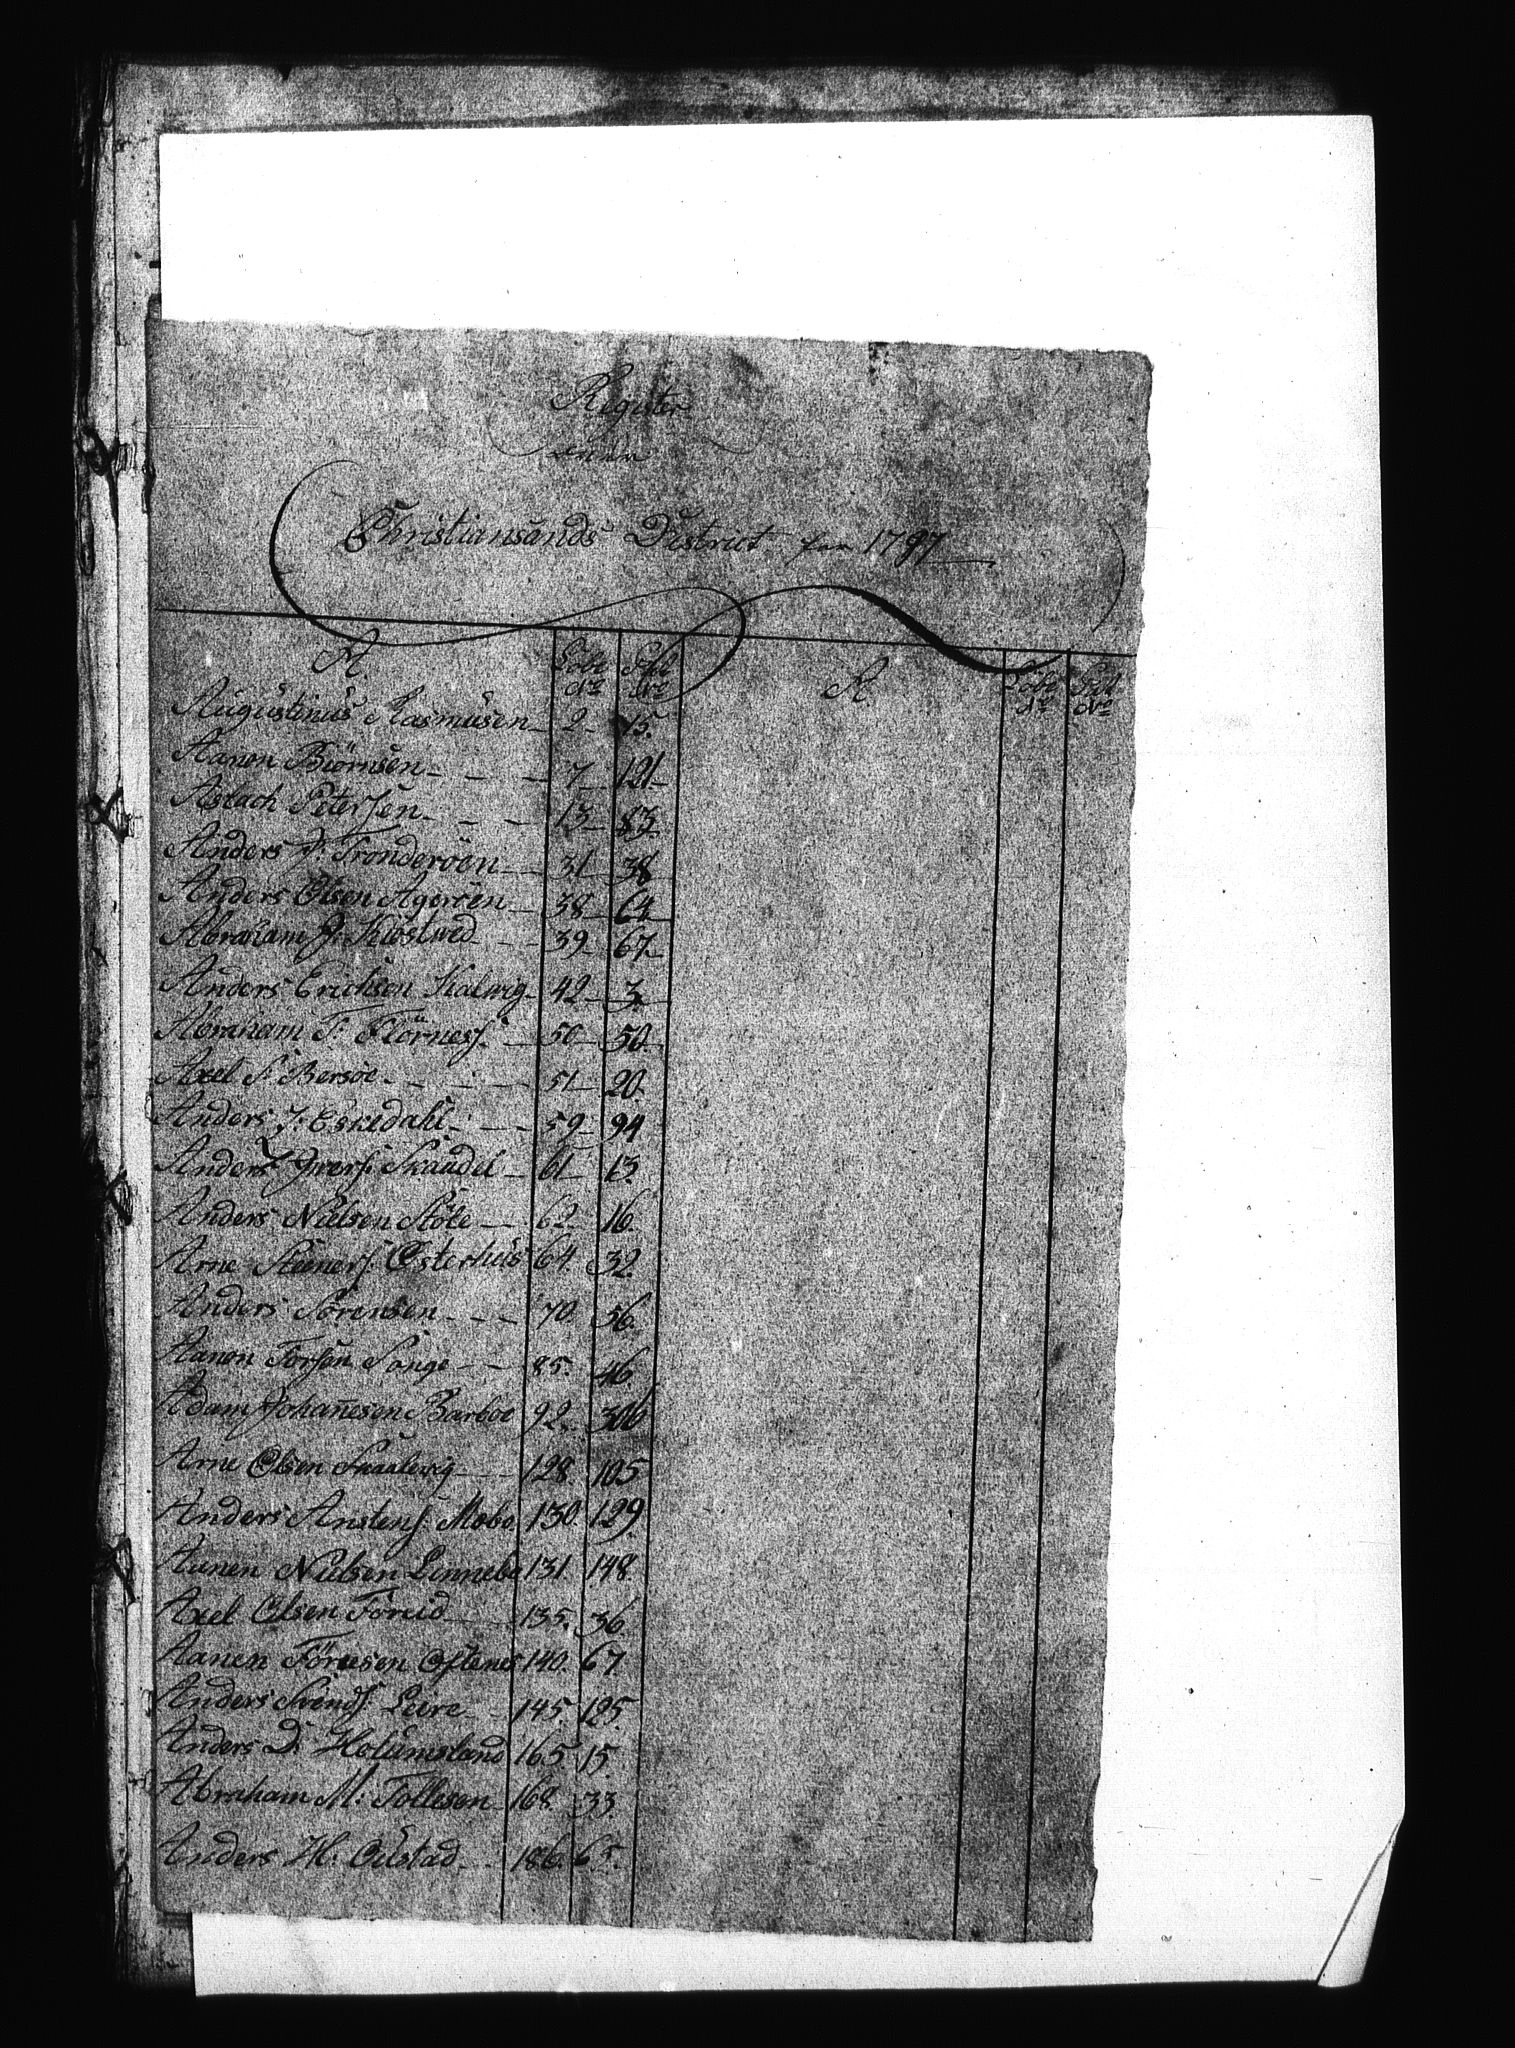 Register
over
Christiansands District for 1797
A. Løbe No Fol No A. Løbe No Fol No
Augustinus Rasmusen 2 15.
Aanon Biörnsen 7 121
Aslach Petersen 13 83.
Anders P: Tronderöen 31 38
Anders Olsen Ageröen 38 64
Abraham J: Kiöstved 39 67.
Anders Erichsen Kalvig 42 3.
Abraham T: Flörness 50 50.
Axel S: Bersöe 51 20.
Anders J: Eskedahl 59 94
Anders Iwers: Skaudel 61 13.
Anders Nielsen Stöle 62 16.
Arne Steeners: Osterhus 64 32.
Anders Sörensen 70. 56.
Aanon Torsen Songe 85. 46
Adam Johanesen Barboe 92. 306
Arne Olsen Skaalevig 128 105
Anders Anstens: Moboe 130. 129.
Aanen Nielsen Linnebo 131 148.
Axel Olsen Foreid 135. 36
Aanen Törresen Oftenes 140. 67
Anders Svends: Lure 145. 125.
Anders D: Holumsland 165. 15.
Abraham M: Tollesen 168. 33.
Anders H: Ollstad 186. 65.